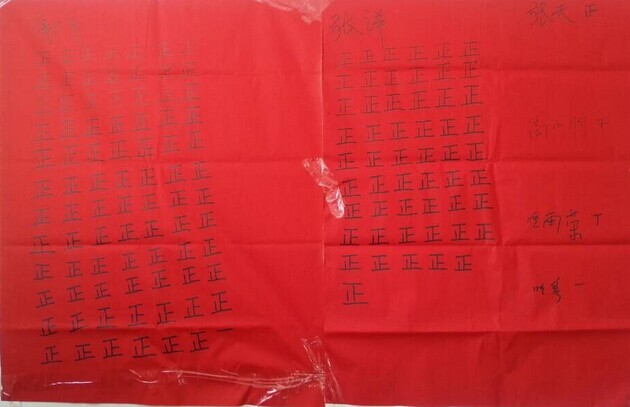 正正正正正正
正正正正正正
正正正正正正
正正正正正正
正正正正正正
正正正正正正
正正正正正正
正正正正正正
正正正正正正
正正正正正正
正正正正正正
正正正正正正一
张洋
正正正正正正
正正正正正正
正正正正正正
正正正正正正
正正正正正正
正正正正正正
正正正正正正
正正正正正正
正正正正正
正
张天 正
雨 丅
一